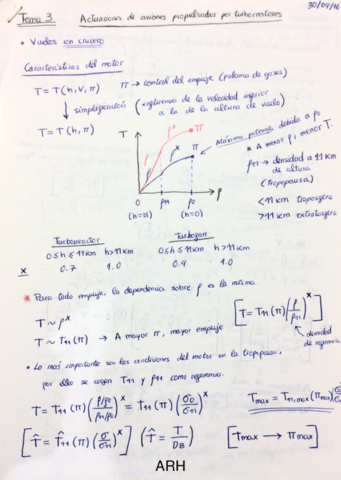 30/09/16
Tema 3. Actuaciones de aviones propulsados por turborreactores
• Vuelos en crucero
Características del motor
T = T(h, V, π) π → control del empuje (palanca de gases)
↓ simplificación (influencia de la velocidad inferior
a la de la altura de vuelo)
T = T(h, π)
T
ρ^x π
ρ ρ^x π
0 ρ11 ρ0 ρ
(h=11) (h=0)
Máxima potencia debida a ρ0
* A menor ρ, menor T.
ρ11 → densidad a 11 km
de altura
(tropopausa)
<11 km troposfera
>11 km estratosfera
Turborreactor Turbofan
0≤h≤11km h>11km 0≤h≤11km h>11km
x 0.7 1.0 0.9 1.0
* Para todo empuje, la dependencia sobre ρ es la misma
T ~ ρ^x
T ~ T11(π) → A mayor π, mayor empuje
[T = T11(π)(ρ/ρ11)^x]
densidad
de referencia
• Lo más importante son las condiciones del motor en la tropopausa,
por ello se cogen T11 y ρ11 como referencia.
T = T11(π)((ρ/ρ0)/(ρ11/ρ0))^x = T11(π)(σ/σ11)^x
Tmax = T11,max(πmax)
[T̂ = T̂11(π)(σ/σ11)^x] (T̂ = T/DB) [Tmax → πmax]
ARH